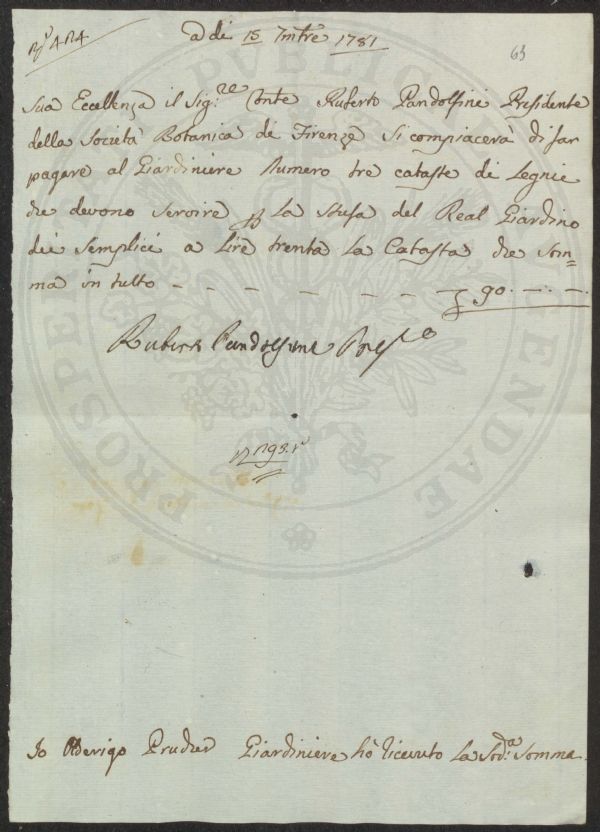 adi 15 7mbre 1781
63
Sua Eccellenza il Sig:re Conte Ruberto Pandolfini Presidente
della Società Botanica di Firenze Si compiacerà di far
pagare al Giardiniere Numero tre cataste di Legnie
che devono servire per La stufa del Real Giardino
dei Semplici a Lire trenta La Catasta che Som=
ma in tutto - - - - - - - £ 90. -. -.
Ruberto Pandolfini Pres.e
Io Olderigo Prucker Giardiniere hò ricevuto La Sod.a Somma
PUBLICAE
PROSPERITATI
AUGENDAE